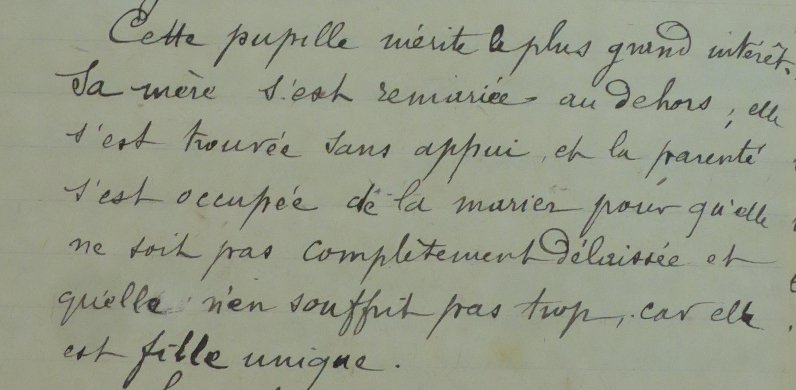 Cette pupille mérite le plus grand intérêt.
Sa mère s'est remariée au dehors, elle
s'est trouvée sans appui, et la parenté
s'est occupée de la marier pour qu'elle
ne soit pas complètement délaissée et
qu'elle n'en souffrit pas trop, car elle
est fille unique.